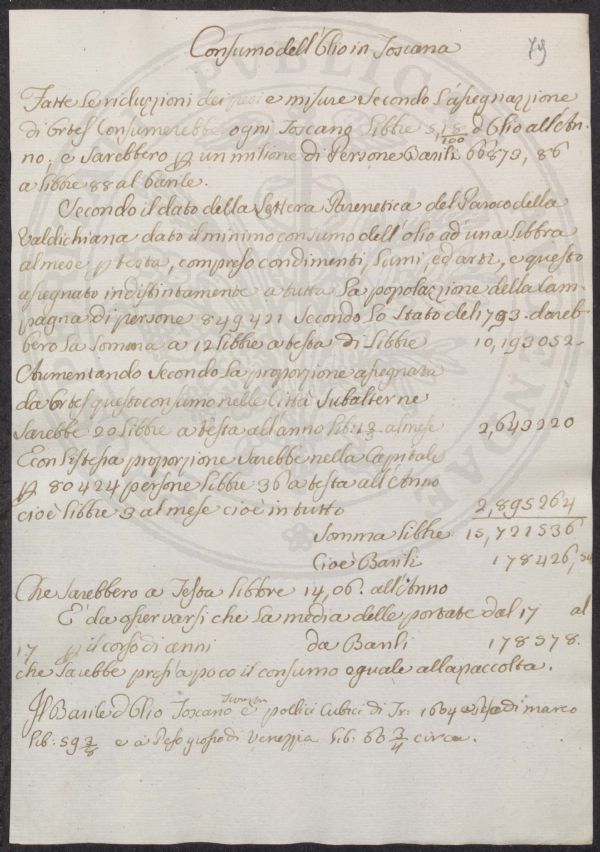 79
Consumo dell'Olio in Toscana
Fatte le riduzioni dei pesi e misure secondo l'asegnazione
di Ortes Consumerebbe ogni Toscano Libbre 5 18/100 d'Olio all'An-
no, e sarebbero p un milione di Persone Barili 66873, 86
a libbre 88 al barile.
Secondo il dato della Lettera Parenetica del Paroco della
Valdichiana dato il minimo consumo dell'olio ad una libbra
al mese p testa, compreso condimenti, lumi, ed arti, e questo
asegnato indistintamente a tutta la popolazione della Cam-
pagna di persone 849421 secondo lo Stato del 1793. dareb-
bero la somma a 12 libbre a testa di Libbre 10,193052-
Aumentando secondo la proporzione asegnata
da Ortes questo consumo nelle Città Subalterne
sarebbe 20 libbre a testa all'anno lib: 1 2/3 al mese 2,643220
E con l'istessa proporzione sarebbe nella Capitale
p 80424 persone libbre 36 a testa all'Anno
cioè libbre 3 al mese cioè in tutto 2,895264
Somma libbre 15,721536
Cioè Barili 178426,
Che sarebbero a Testa libbre 14,06. all'Anno
E' da osservarsi che la media delle portate dal 17 al
17 p il corso di anni da Barili 178378.
che sarebbe press'a poco il consumo eguale alla raccolta.
Il Barile d'Olio Toscano è pollici Cubici di Fr: 1604 e di marco
lib: 59 e a Peso grosso di Venezia lib: 66 3/4 circa.